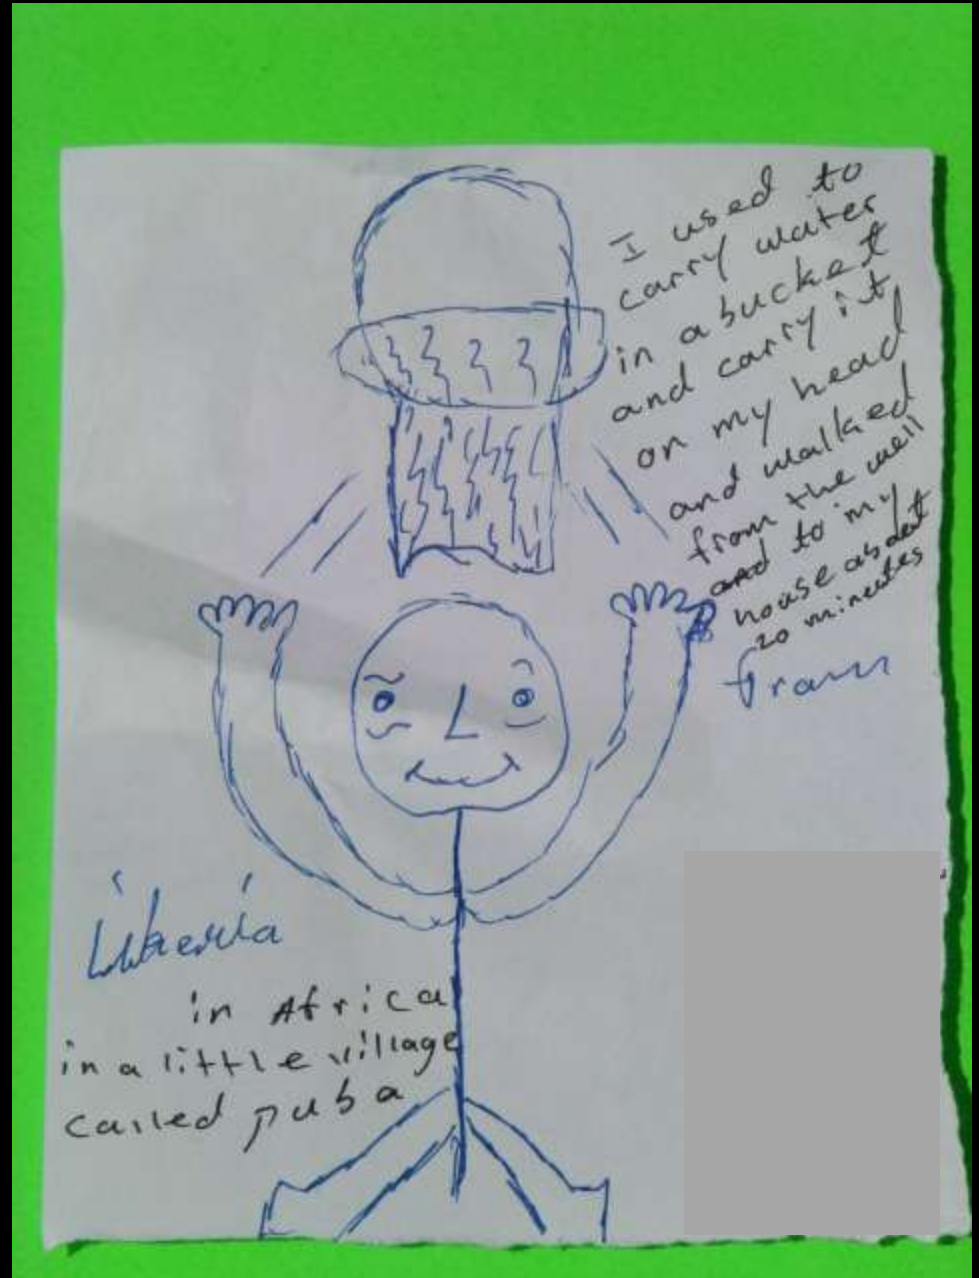 I used to
carry water
in a bucket
and carry it
on my head
and walked
from the well
and to my
house about
20 minutes
from
Liberia
in Africa
in a little village
called puba